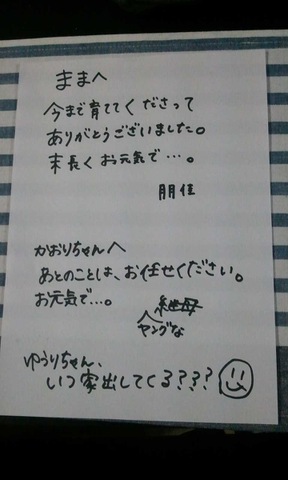 ままへ
今まで育ててくださって
ありがとうございました。
末長くお元気で…。
朋佳
かおりちゃんへ
あとのことは、お任せください。
お元気で…。
継母
ヤングな
ゆうりちゃん、
いつ家出してくる???